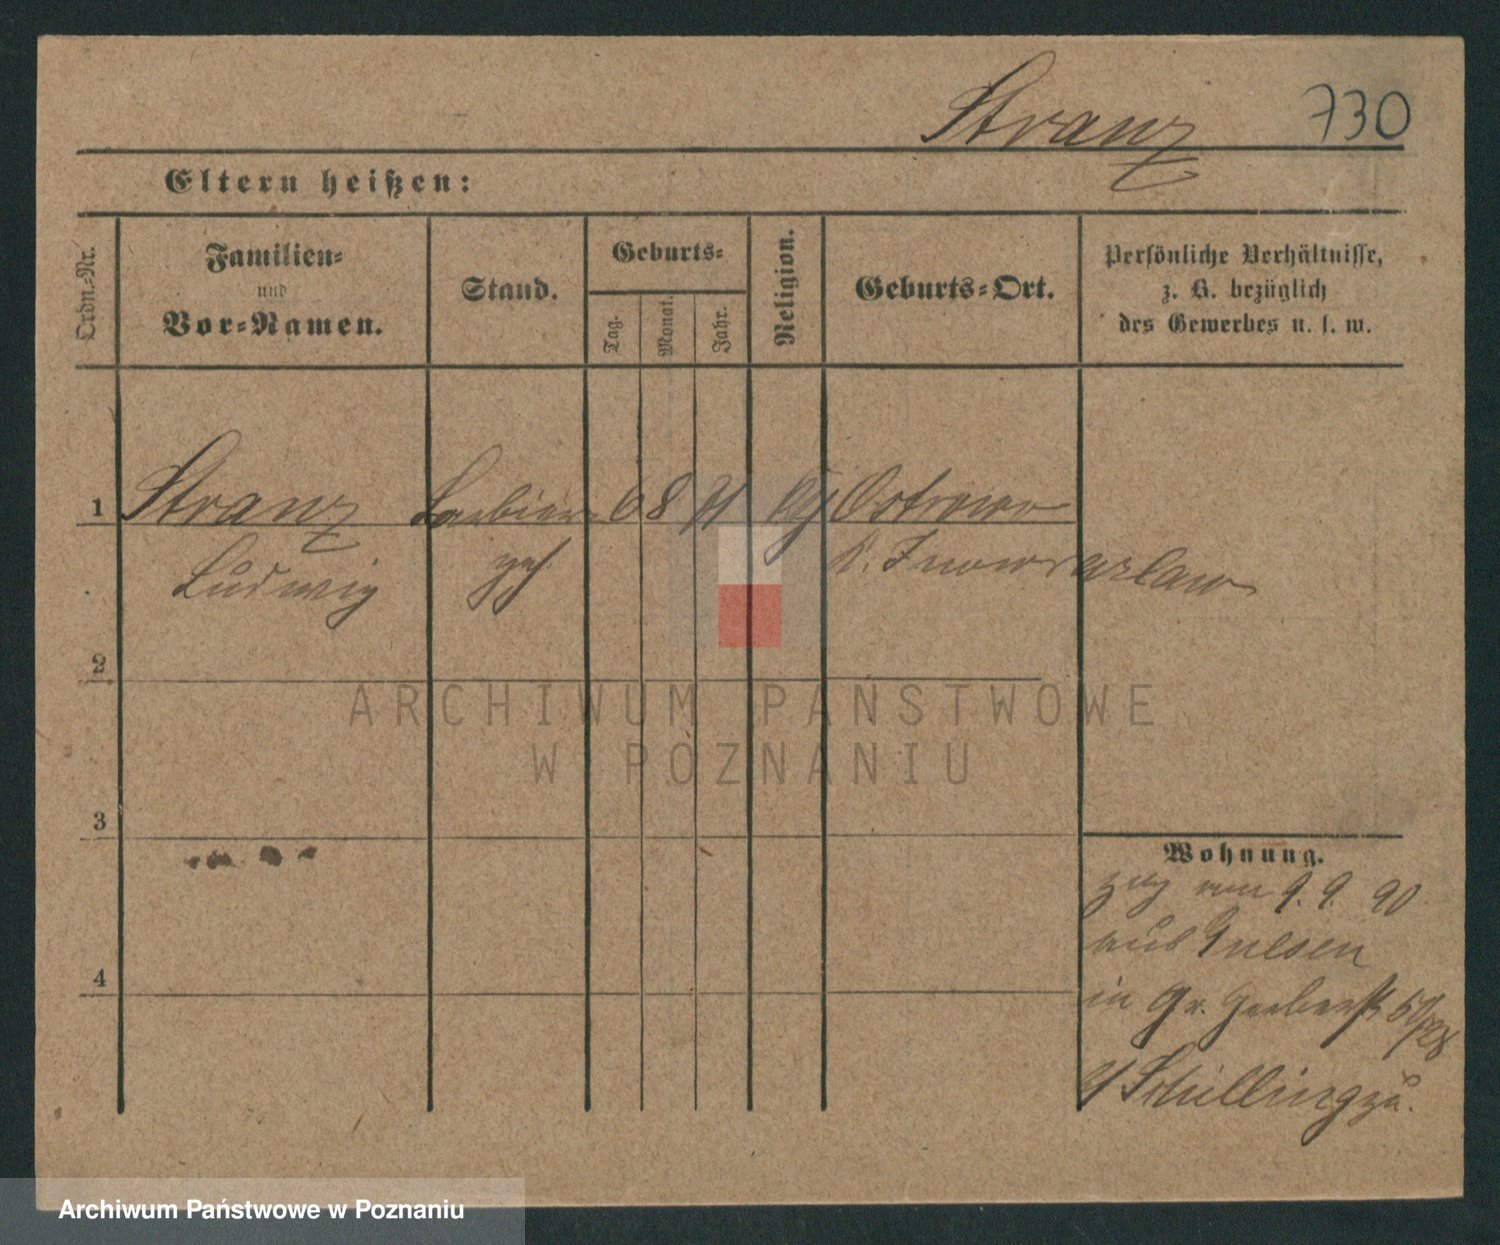 Stranz 730
Eltern heißen:
Ordn.-Nr.
Familien-
und
Vor-Namen.
Stand.
Geburts-
Tag.
Monat.
Jahr.
Religion.
Geburts-Ort.
Persönliche Verhältnisse,
z. B. bezüglich
des Gewerbes u. s. w.
1 Stranz 6 8 71 Ostrowo
Ludwig
Inowrazlaw
2
ARCHIWUM PAŃSTWOWE
W POZNANIU
3
Wohnung.
zug von 9. 9. 90
aus Gnesen
4
in Gr. Gerberstr
Schilling
Archiwum Państwowe w Poznaniu